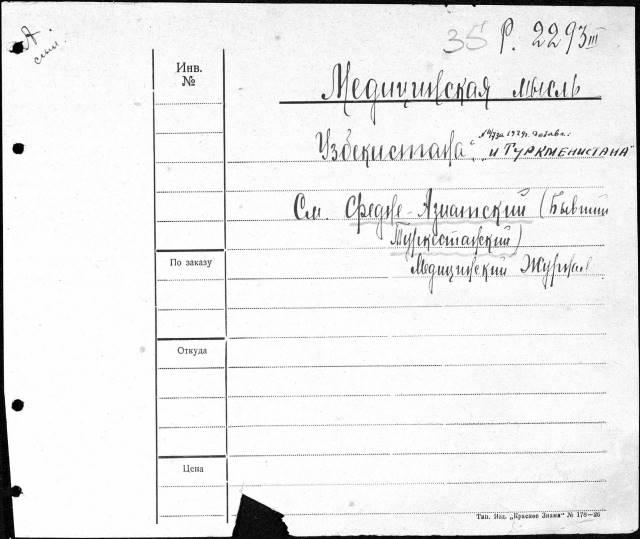 А
35 Р. 2293 III
Инв.
№
Медицинская мысль
с № 4/7 за 1929 г. добавл.:
Узбекистана" „и Туркменистана"
См. Средне-Азиатский (Бывший
Туркестанский)
Медицинский Журнал
По заказу
Откуда
Цена
Тип. Изд. „Красное Знамя" № 178—26